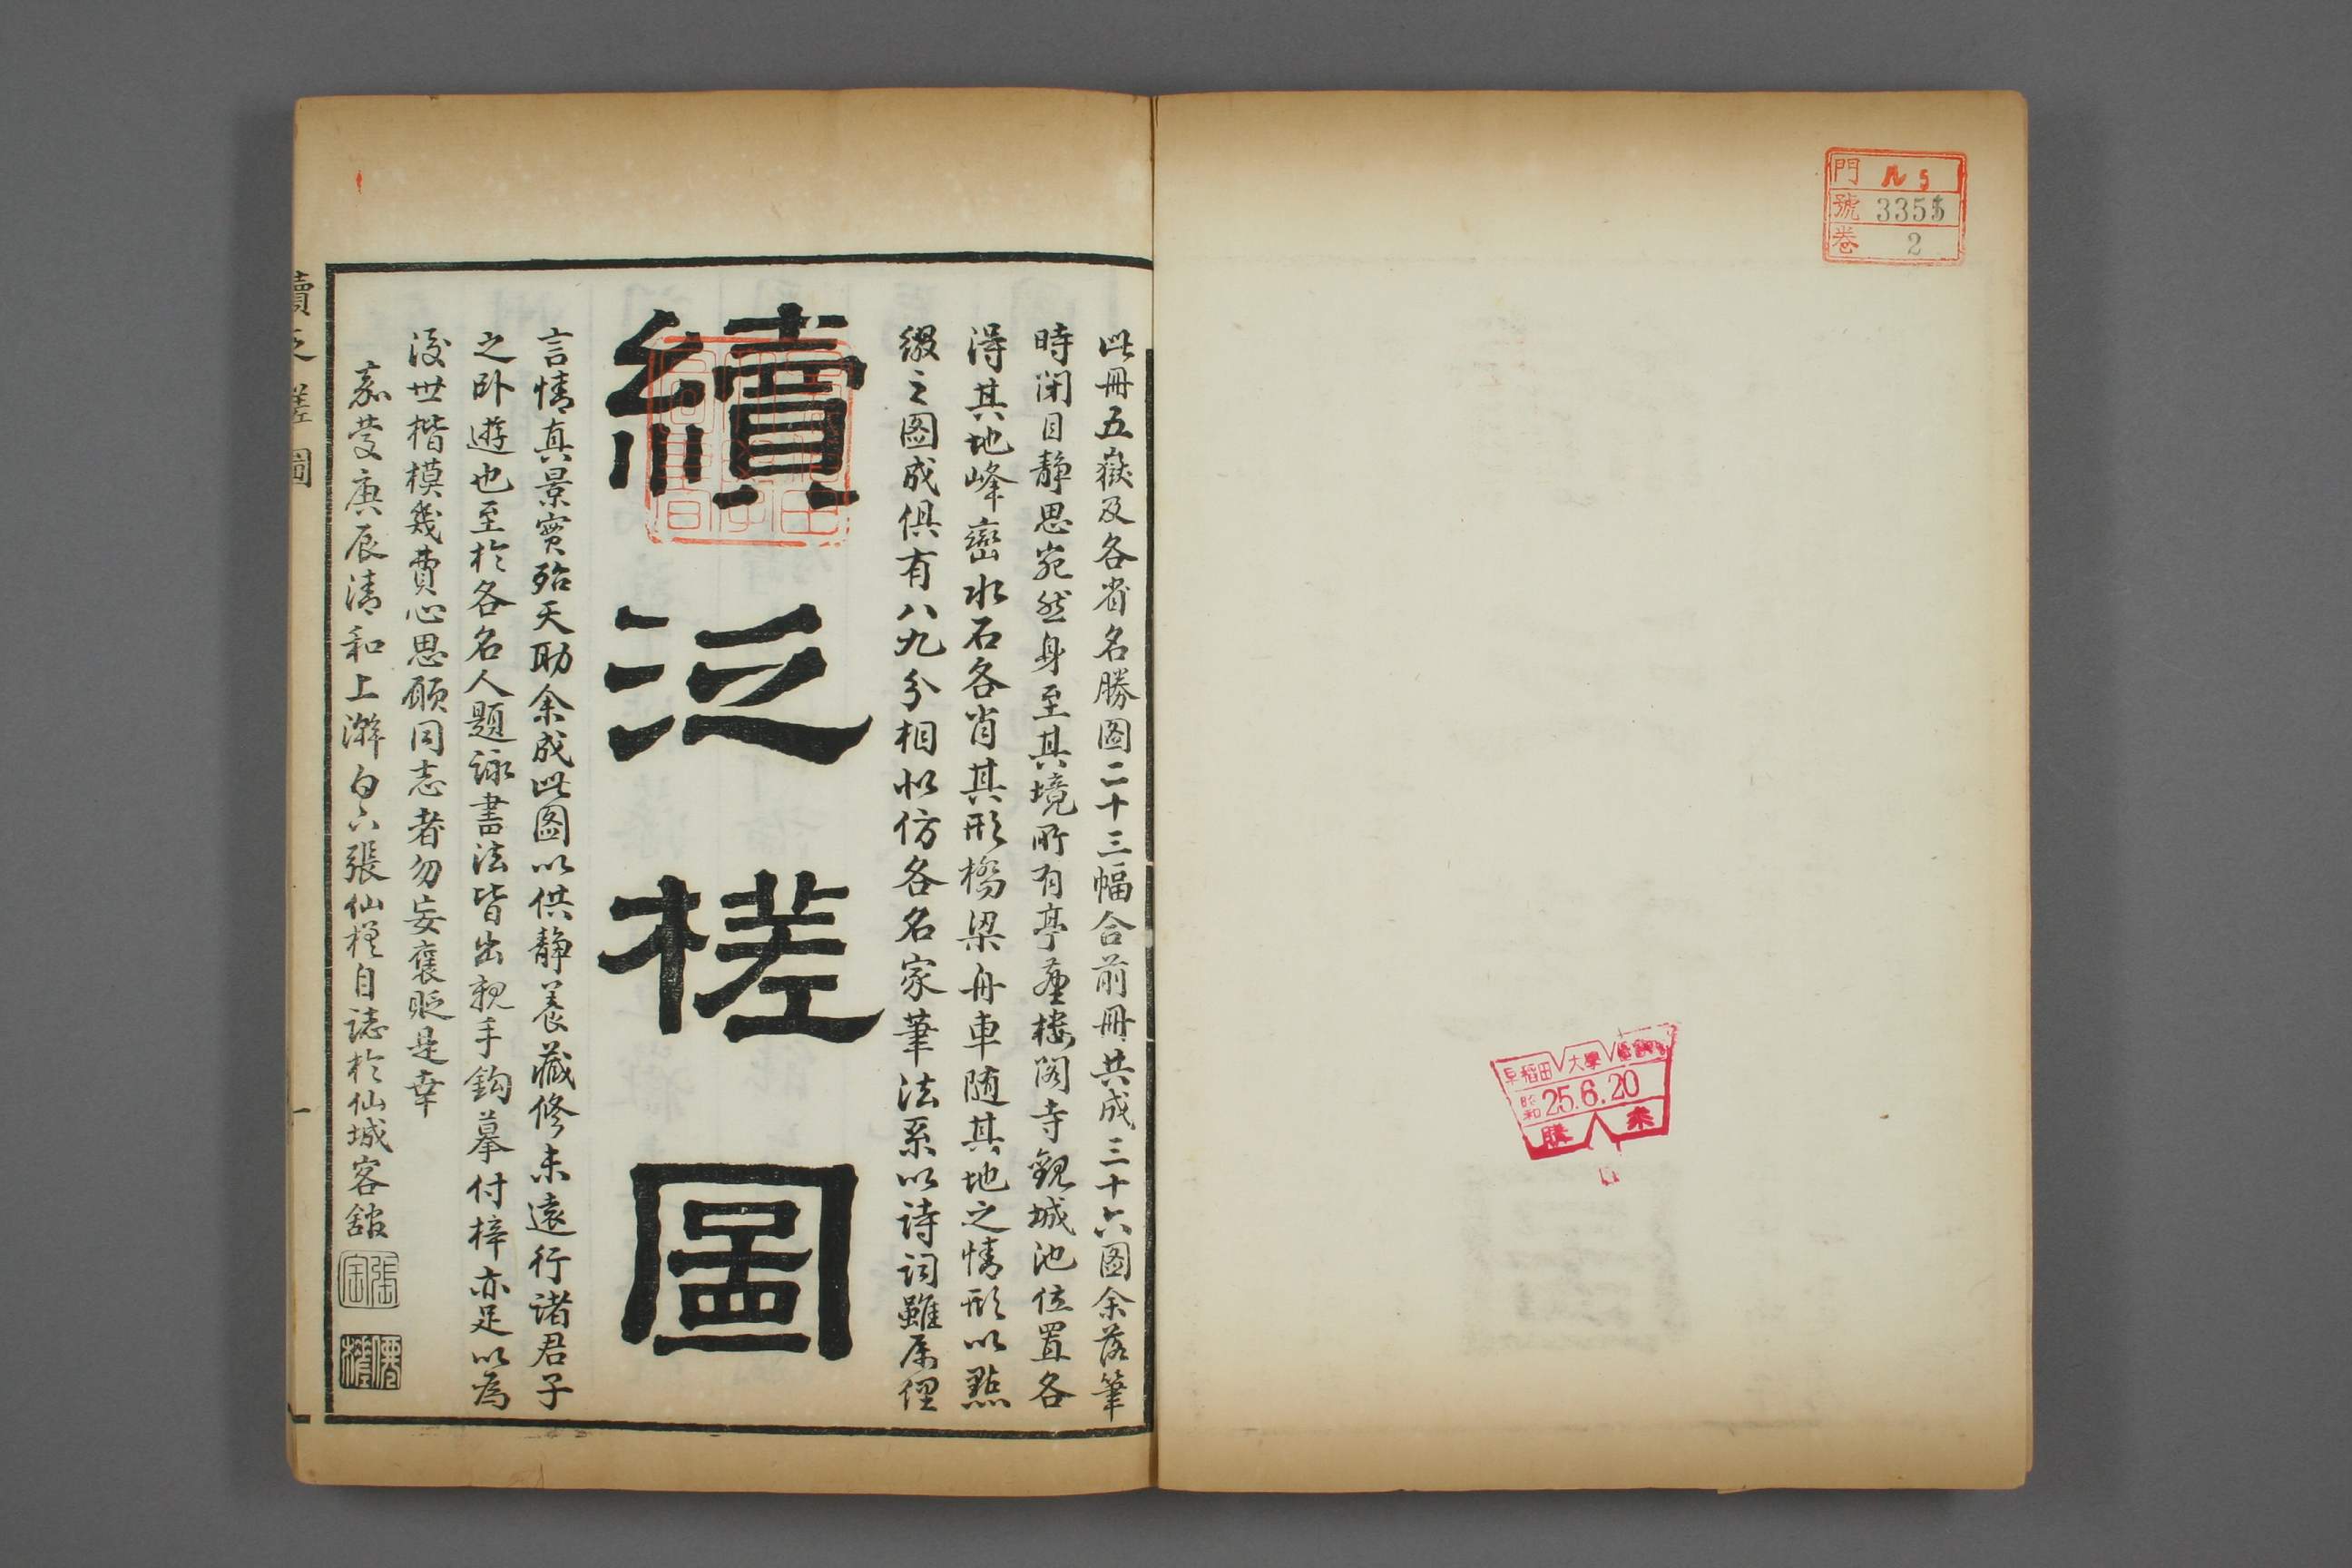 門 ル5
號 3355
卷 2
早稻田大學
昭和25.6.20
購 來
此冊五嶽及各省名勝圖二十三幅合前冊共成三十六圖余落筆
時閉目靜思宛然身至其境所有亭臺樓閣寺觀城池位置各
得其地峰巒水石各肖其形橋梁舟車随其地之情形以點
綴之圖成俱有八九分相似仿各名家筆法系以詩詞雖属俚
續泛槎圖
言情真景實殆天助余成此圖以供靜養藏修未遠行诸君子
之卧遊也至於各名人題詠書法皆出親手鈎摹付梓亦足以為
後世楷模幾費心思願同志者勿妄褒貶是幸
嘉慶庚辰清和上澣白下張仙槎自誌於仙城客舘
張寶
僊槎
續泛槎圖
一